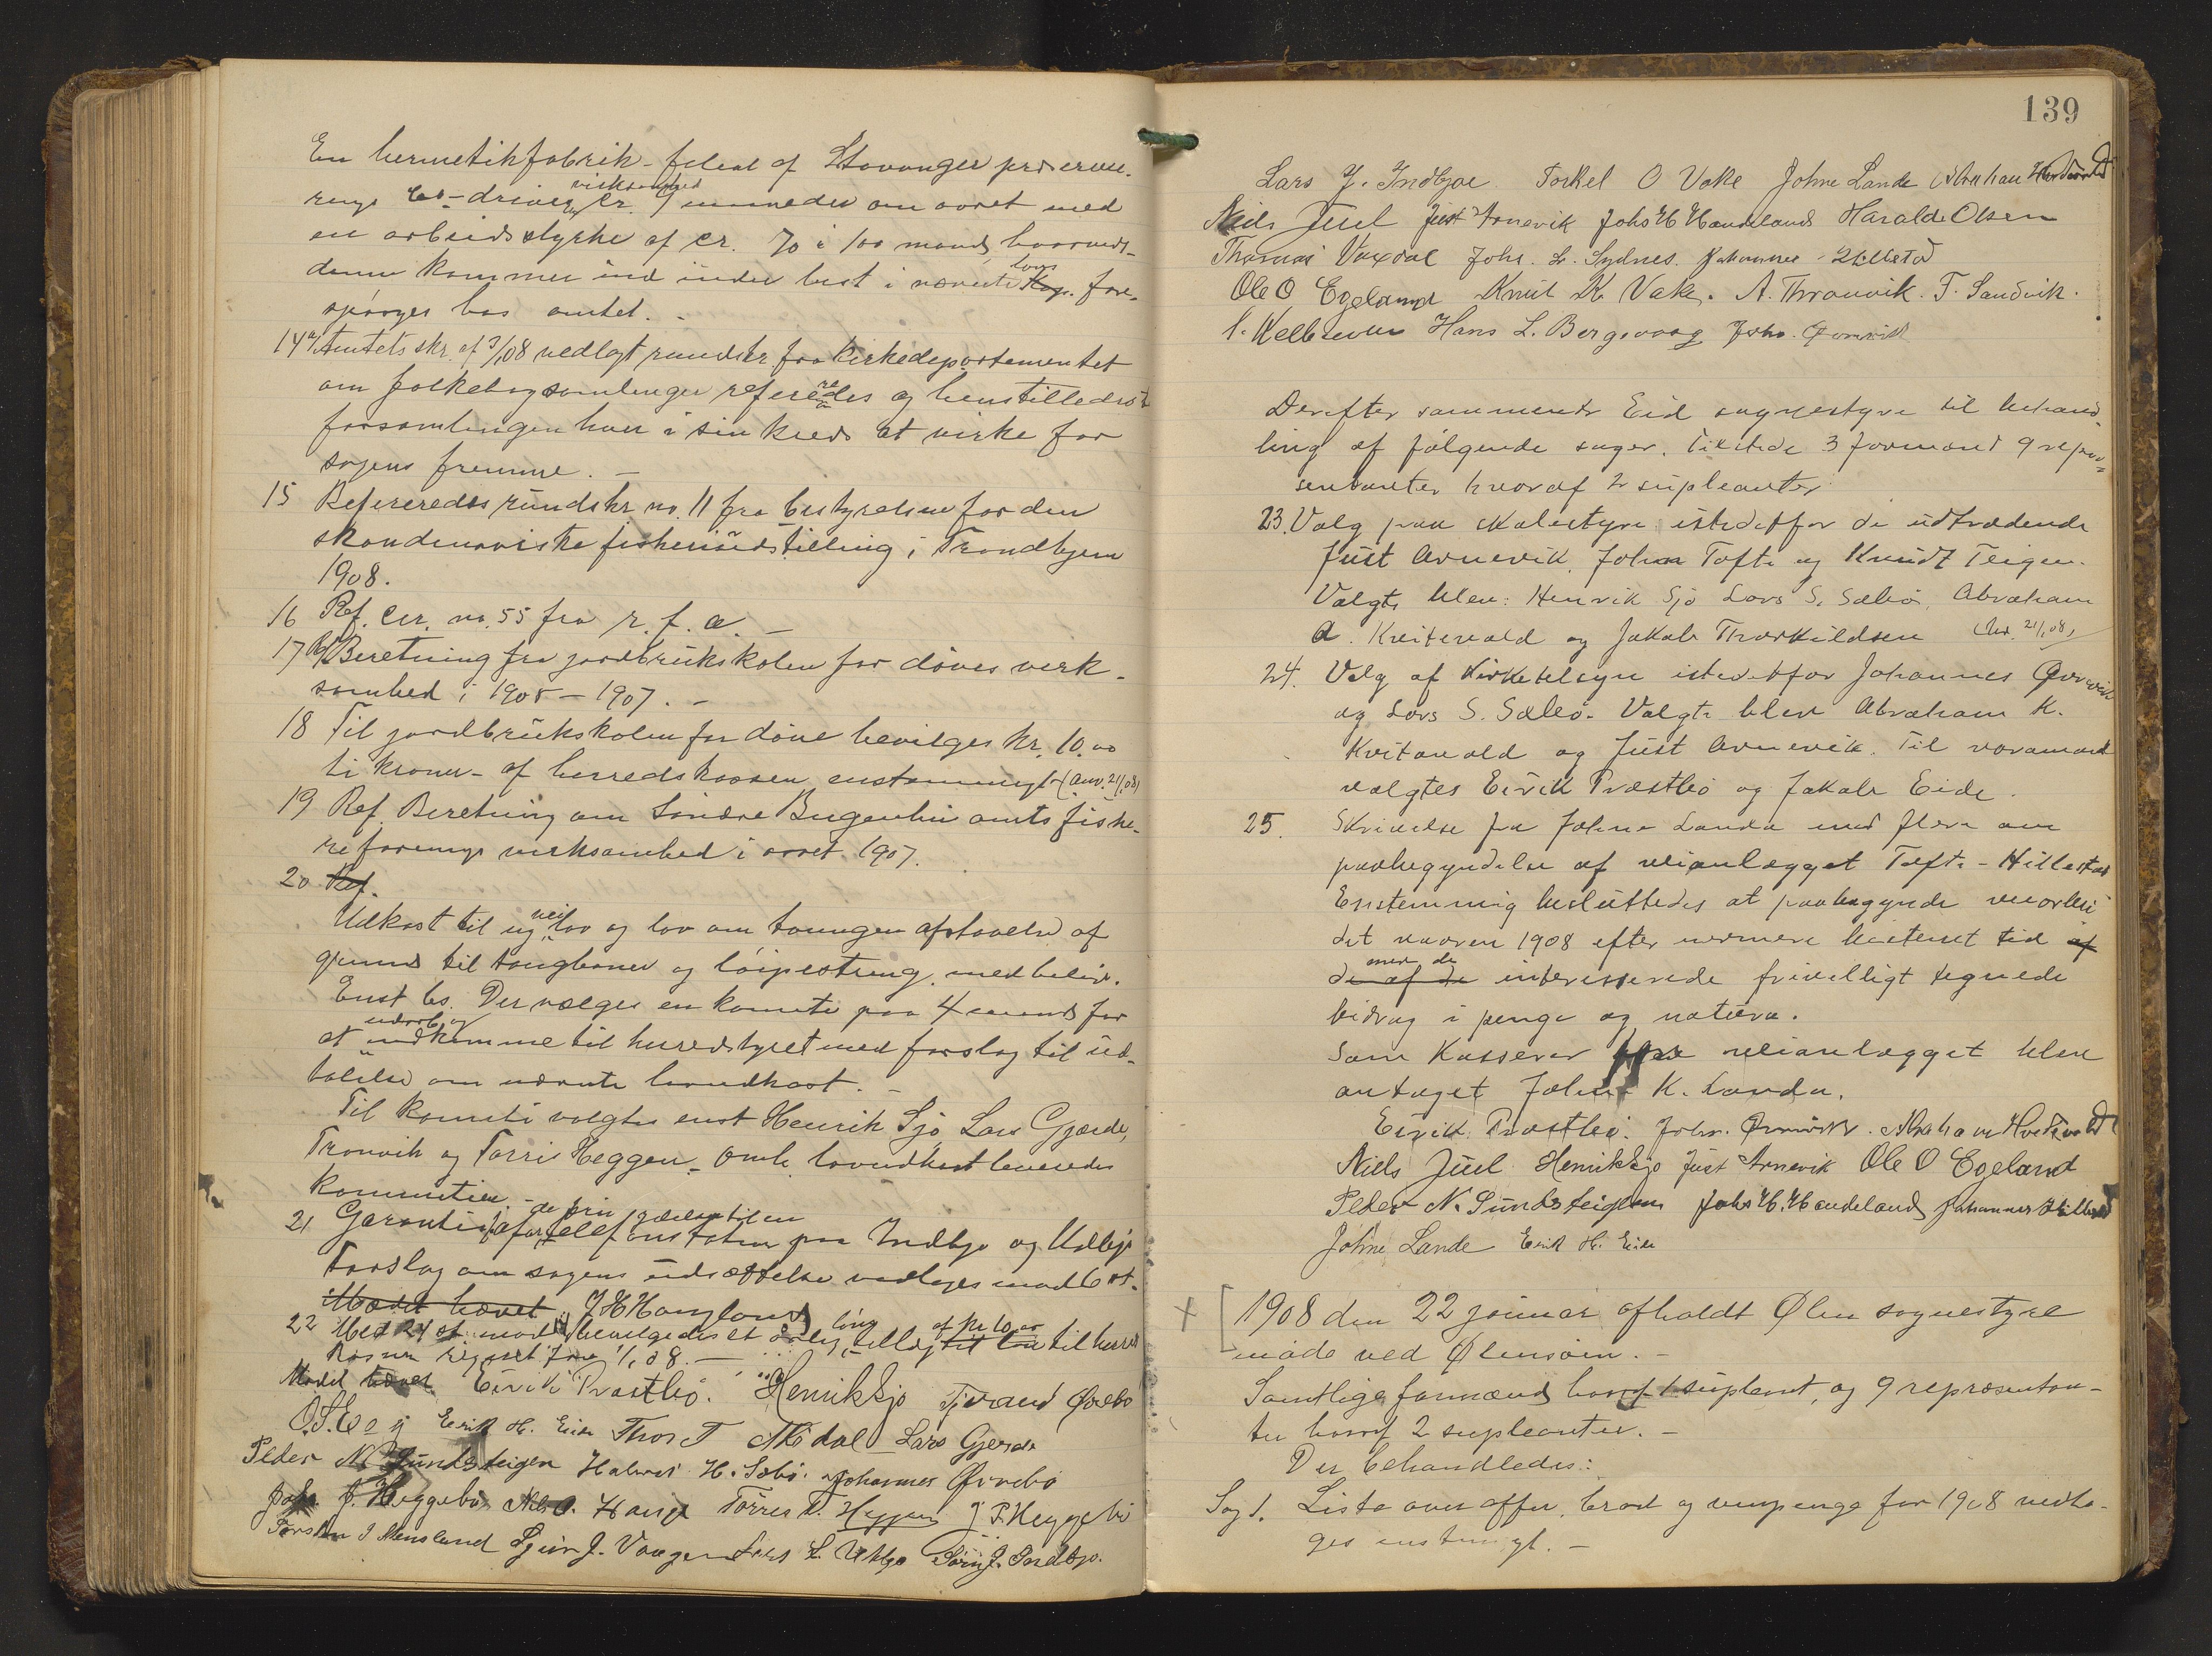 En hermetikfabrik - filial af Stavanger preserve-
rings co - driver virksomhed cr. 9 maaneder om aaret med
en arbeidsstyrke af cr. 70 à 100 mand, hvorvidt
denne kommer ind under best i nævnte lovs fore-
spørges hos amtet. -
14 Amtets skr. af 3/1 08 vedlagt rundskr. fra Kirkedepartementet
om folkebogsamlinger refereredes og henstilledes til
forsamlingen hver i sin kreds at virke for
sagens fremme. -
15 Refereredes rundskr no. 11 fra bestyrelsen for den
skandinaviske fiskeriudstilling i Trondhjem
1908.
16 Ref. Cir. no. 55 fra r. f. a. -
17 Ref. Beretning fra jordbrukskolen for døves verk-
somhed i 1905 - 1907. -
18 Til jordbrukskolen for døve bevilges kr. 10.00
ti kroner - af herredskassen enstemmigt - (anv. 21/1 08)
19 Ref. Beretning om Søndre Bergenhus amts fiske-
riforenings verksomhed i aaret 1907.
20 Ref.
Utkast til ny veilov og lov om tvungen afstaaelse af
grund til taugbaner og løipestreng. medbehdl.
Enst bs. Der vælges en komite paa 4 mand for
at udarb. og indkomme til herredstyret med forslag til ud-
talelse om nævnte lovudkast. -
Til komité valgtes enst Henrik Sjo, Lars Gjerde,
Tronvik og Torris Heggen. Omh. lovudkast leveredes
kommitien. -
21 Garanti for telefonstation paa Indbjo og Utbjo
Forslag om sagens udsættelse vedtages mod 6 st.
Mødet hævet J H Haugland
22 Med 24 st. mod bevilgedes et aarlig tillæg af kr 10,00 til herreds
kasseren regnet fra 1/1 08. -
Mødet hævet Eirik Præstbø. Henrik Sjo Tjerand Øvrebø
Eirik H. Eide Thor T Mødal Lars Gjerde
Peder N. Sundsteigen Halvor H. Søbø. Johannes Øvrebø
Johs. J. Heggebø Nils O. Hauge Torres T. Heggen J. T. Heggebø
Torsten J Aensland J. Vaagen Lars L. Utbjo J. Indbjo.
139
Lars J. Indbjoe Torkel O Vake Johne Lande Abraham
Niels Juul Just Arnevik Johs H Handeland Harald Olsen
Thomas Vaxdal Johs. L. Sydnes. Johannes Hillestad
Ole O Egeland Knut K. Vake. A. Thronvik. T. Sandvik.
Hans L. Bergsvaag Johs. Ørnevik
Derefter sammentr Eid sognestyre til behand
ling af følgende sager. Tilstede 3 formænd 9 repræ-
sentanter hvoraf 2 supleanter
23. Valg paa skolestyre istedetfor de udtrædende
Just Arnevik, Johne Tofte og Knudt Teigen.
Valgte blev: Henrik Sjo Lars S. Sæbø, Abraham
A. Kvitevold og Jakob Thorkildsen (Un. 21/1 08)
24. Valg af Kirketilsyn istedetfor Johannes Ørnevik
og Lars S. Sæbø. Valgte blev Abraham K.
Kvitavold og Just Arnevik. Til varamænd
valgtes Eirik Præstbø og Jakob Eide.
25. Skrivelse fra Johne Landa med flere om
paabegyndelse af veianlægget Tofte - Hillestad
Enstemmig besluttedes at paabegynde veiarbei
det vaaren 1908 efter nærmere bestemt tid af
de af de med de interesserede frivilligt tegnede
bidrag i penge og natura.
Som Kasserer for veianlægget blev
antaget Johne K. Landa.
Eirik Præstbø. Johs. Ørnevik. Abraham Kvitevold
Niels Juul Henrik Sjo Just Arnevik Ole O Egeland
Peder N. Sundsteigen Johs H. Handeland Johannes Hillestad
Johne Lande Eirik H. Eide
1908 den 22 januar afholdt Ølen sognestyre
møde ved Ølensøen. -
Samtlige formænd hvoraf 1 supleant, og 9 repræsentan-
ter hvoraf 2 supleanter. -
Der behandledes:
Sag 1. Liste over offer, brød og vinpenge for 1908 vedta-
ges enstemigt. -